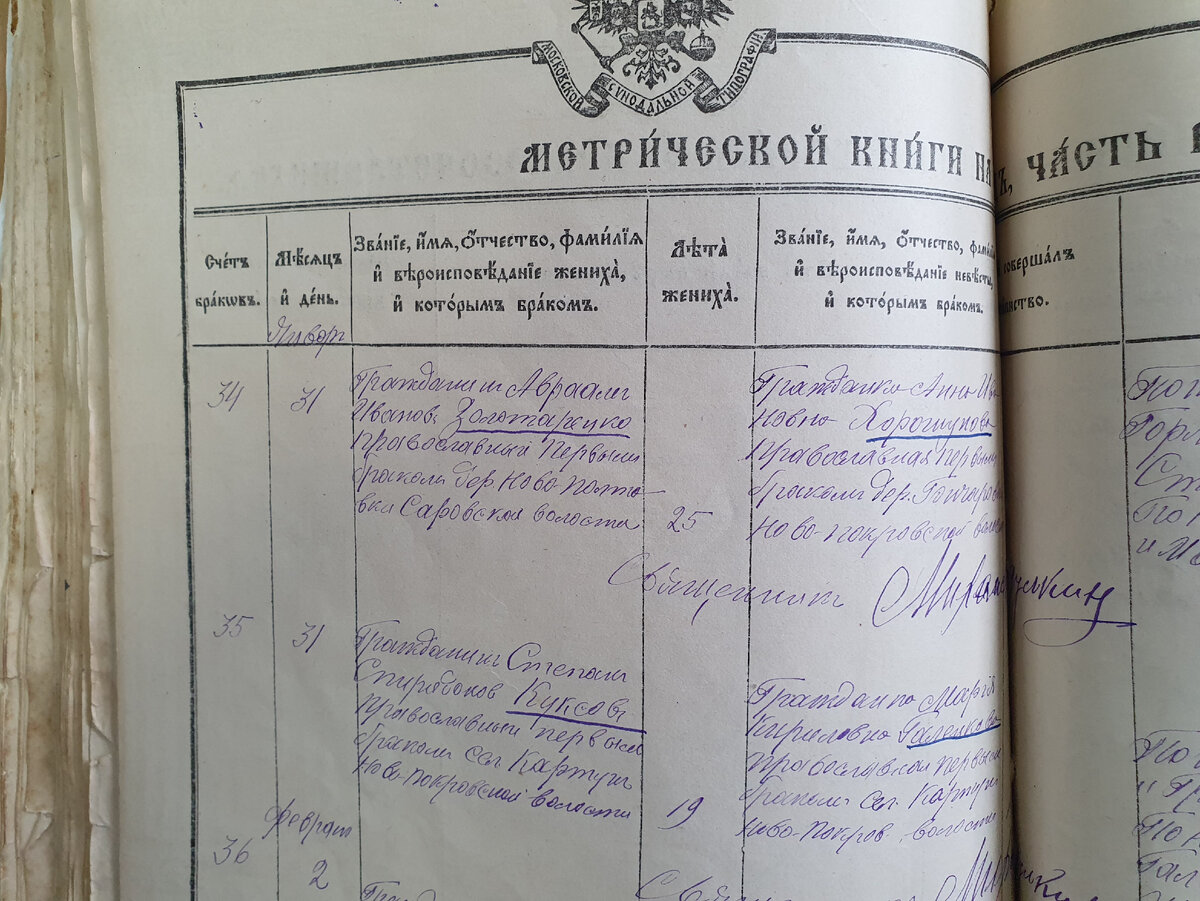 МОСКОВСКОЙ СѴНОДАЛЬНОЙ ТИПОГРАФІИ.
МЕТРИ́ЧЕСКОЙ КНИ́ГИ НА
Ъ, ЧА́СТЬ В
Сче́тъ бра́кωвъ.
Мѣ́сѧцъ и҆ де́нь.
Зва́нїе, и҆́мѧ, ѻ҆́тчество, фами́лїѧ
и҆ вѣроисповѣ́данїе жениха̀,
и҆ кото́рымъ бра́комъ.
Лѣта̀ жениха̀.
Зва́нїе, и҆́мѧ, ѻ҆́тчество, фами́лїѧ
и҆ вѣроисповѣ́данїе невѣ́сты,
и҆ кото́рымъ бра́комъ.
соверша́лъ
нство.
Январь
34
31
Гражданинъ Авраамъ
Ивановъ Золотаренко
Православный Первымъ
бракомъ дер. Ново-Полта-
вки Саровской волости
25
Гражданка Анна Ива
новна Хорошунова
Православная Первым
бракомъ дер. Гончаров
Ново-покровской волос
Горл
Ст
и М
Священникъ
35
31
Гражданинъ Степанъ
Спиридонов Куксовъ
православный первым
бракомъ сел. Картунъ
Ново-покровской волости
19
Гражданка Марія
Кириловна Галенкова
Православной первым
бракомъ сел. Картунъ
Ново-Покров. волости
Гал
Февраль
36
2